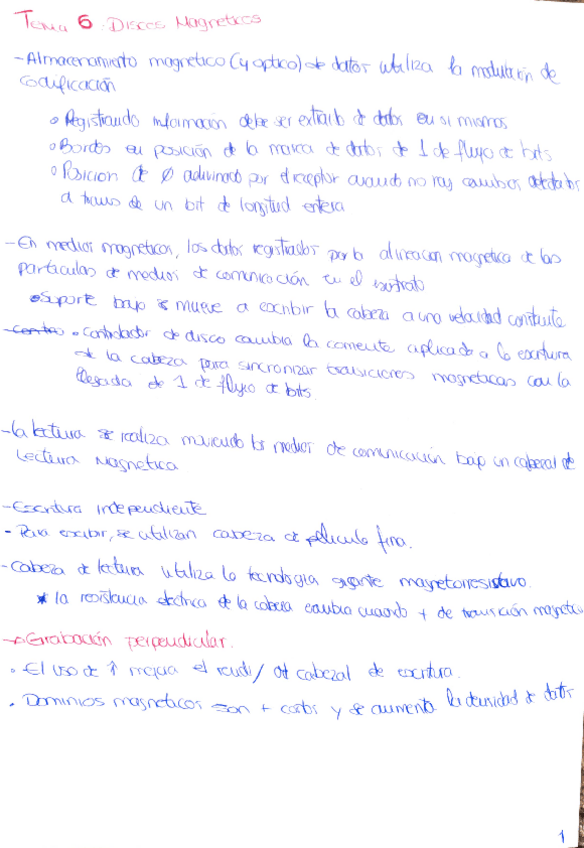 Tema 6. Discos Magneticos
- Almacenamiento magnetico (y optico) de datos utiliza la modulación de
codificación
o Registrando información debe ser extraib de datos en si mismos
o Bordes en posición de la marca de datos de 1 de flujo de bits
o Posicion de 0 adivinado por el receptor cuando no hay cambios detectables
a traves de un bit de longitud entera
- En medios magneticos, los datos registrados por la alineacion magnetica de las
particulas de medios de comunicación en el sustrato
o Suporte bajo se mueve a escribir la cabeza a una velocidad constante
o Controlador de disco cambia la corriente aplicada a la escritura
de la cabeza para sincronizar transiciones magneticas con la
llegada de 1 de flujo de bits.
- La lectura se realiza moviendo los medios de comunicación bajo un cabezal de
Lectura Magnetica
- Escritura independiente
- Para escribir, se utilizan cabeza de pelicula fina.
- Cabeza de lectura utiliza la tecnologia gigante magnetorresistivo.
* la resistencia electrica de la cabeza cambia cuando + de transición magnetica
→ Grabación perpendicular.
. El uso de ↑ mejora el rendi/ del cabezal de escritura.
. Dominios magneticos son + cortos y se aumenta la densidad de datos
1